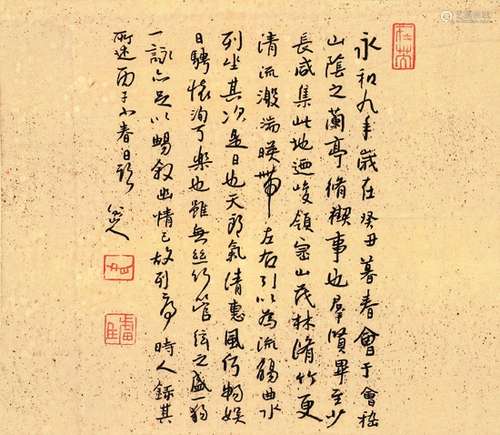 永和九年歲在癸丑暮春會于會稽
山陰之蘭亭脩禊事也羣賢畢至少
長咸集此地迺峻領崇山茂林脩竹更
清流激湍暎帶左右引以為流觴曲水
列坐其次是日也天朗氣清惠風和暢娛
目騁懷洵可樂也雖無絲竹管弦之盛一觴
一詠亦足以暢敘幽情已故列序時人錄其
所述丙子小春日題
八大山人